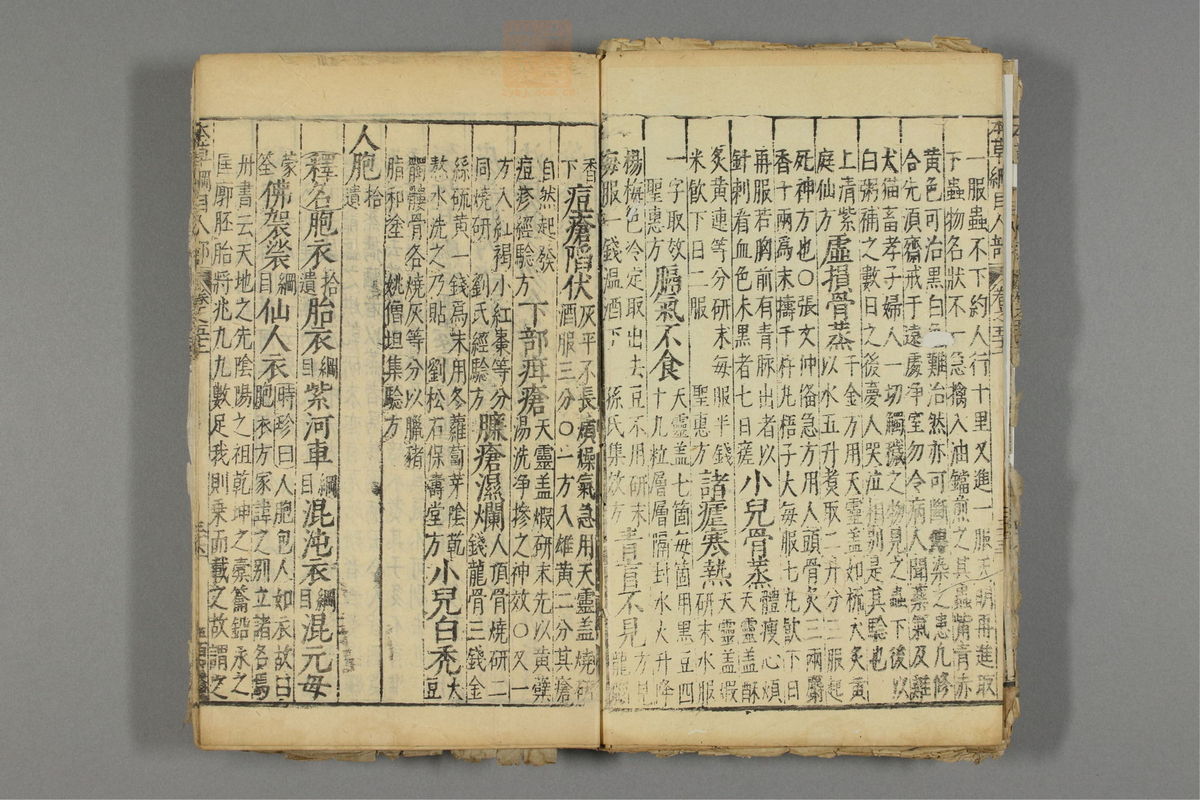 一服蟲不下約人行十里又進一服天明再進取
下蟲物名狀不一急擒入油鐺煎之其蟲觜青赤
黃色可治黑白色難治然亦可斷傳染之患凡修
合先須齋戒于遠處净室勿令病人聞藥氣及雞
犬猫畜孝子婦人一切觸穢之物見之蟲下後以
白粥補之數日之後夢人哭泣相別是其驗也
上清紫
庭仙方
虛損骨蒸
千金方用天靈盖如梳大炙黃
以水五升煮取二升分三服起
死神方也○張文仲俻急方用人頭骨炙三兩麝
香十兩爲末擣千杵丸梧子大每服七丸飲下日
再服若胸前有青脉出者以
針刺看血色未黑者七日瘥
小兒骨蒸
體瘦心煩
天靈盖酥
炙黃連等分研末每服半錢
米飲下日二服 聖惠方
諸瘧寒熱
天靈盖煅
研末水服
一字取效
聖惠方
膈氣不食
天靈盖七箇每箇用黑豆四
十九粒層層隔封水火升降
楊梅色冷定取出去豆不用研末
每服一錢温酒下 孫氏集效方
青盲不見
香
下
痘瘡陷伏
灰平不長煩燥氣急用天靈盖燒研
酒服三分○一方入雄黃二分其瘡
自然起發
痘疹經驗方
下部疳瘡
天靈盖煅研末先以黃蘗
湯洗净摻之神效○又一
方入紅褐小紅棗等分
同燒研 劉氏經驗方
臁瘡濕爛
人頂骨燒研二
錢龍骨三錢金
絲硫黃一錢爲末用冬蘿蔔芽陰乾
熬水洗之乃貼 劉松石保壽堂方
小兒白禿
大
豆
髑髏骨各燒灰等分以臘猪
脂和塗 姚僧坦集驗方
人胞 拾遺
釋名胞衣 拾遺 胎衣 綱目 紫河車 綱目 混沌衣 綱目 混元母
蒙
筌
佛袈裟 綱目 仙人衣
時珍曰人胞包人如衣故曰
胞衣方家諱之别立諸名焉
丹書云天地之先陰陽之祖乾坤之橐籥鉛汞之
匡廓胚胎將兆九九數足我則乗而載之故謂之
本草綱目人部 卷之五十二